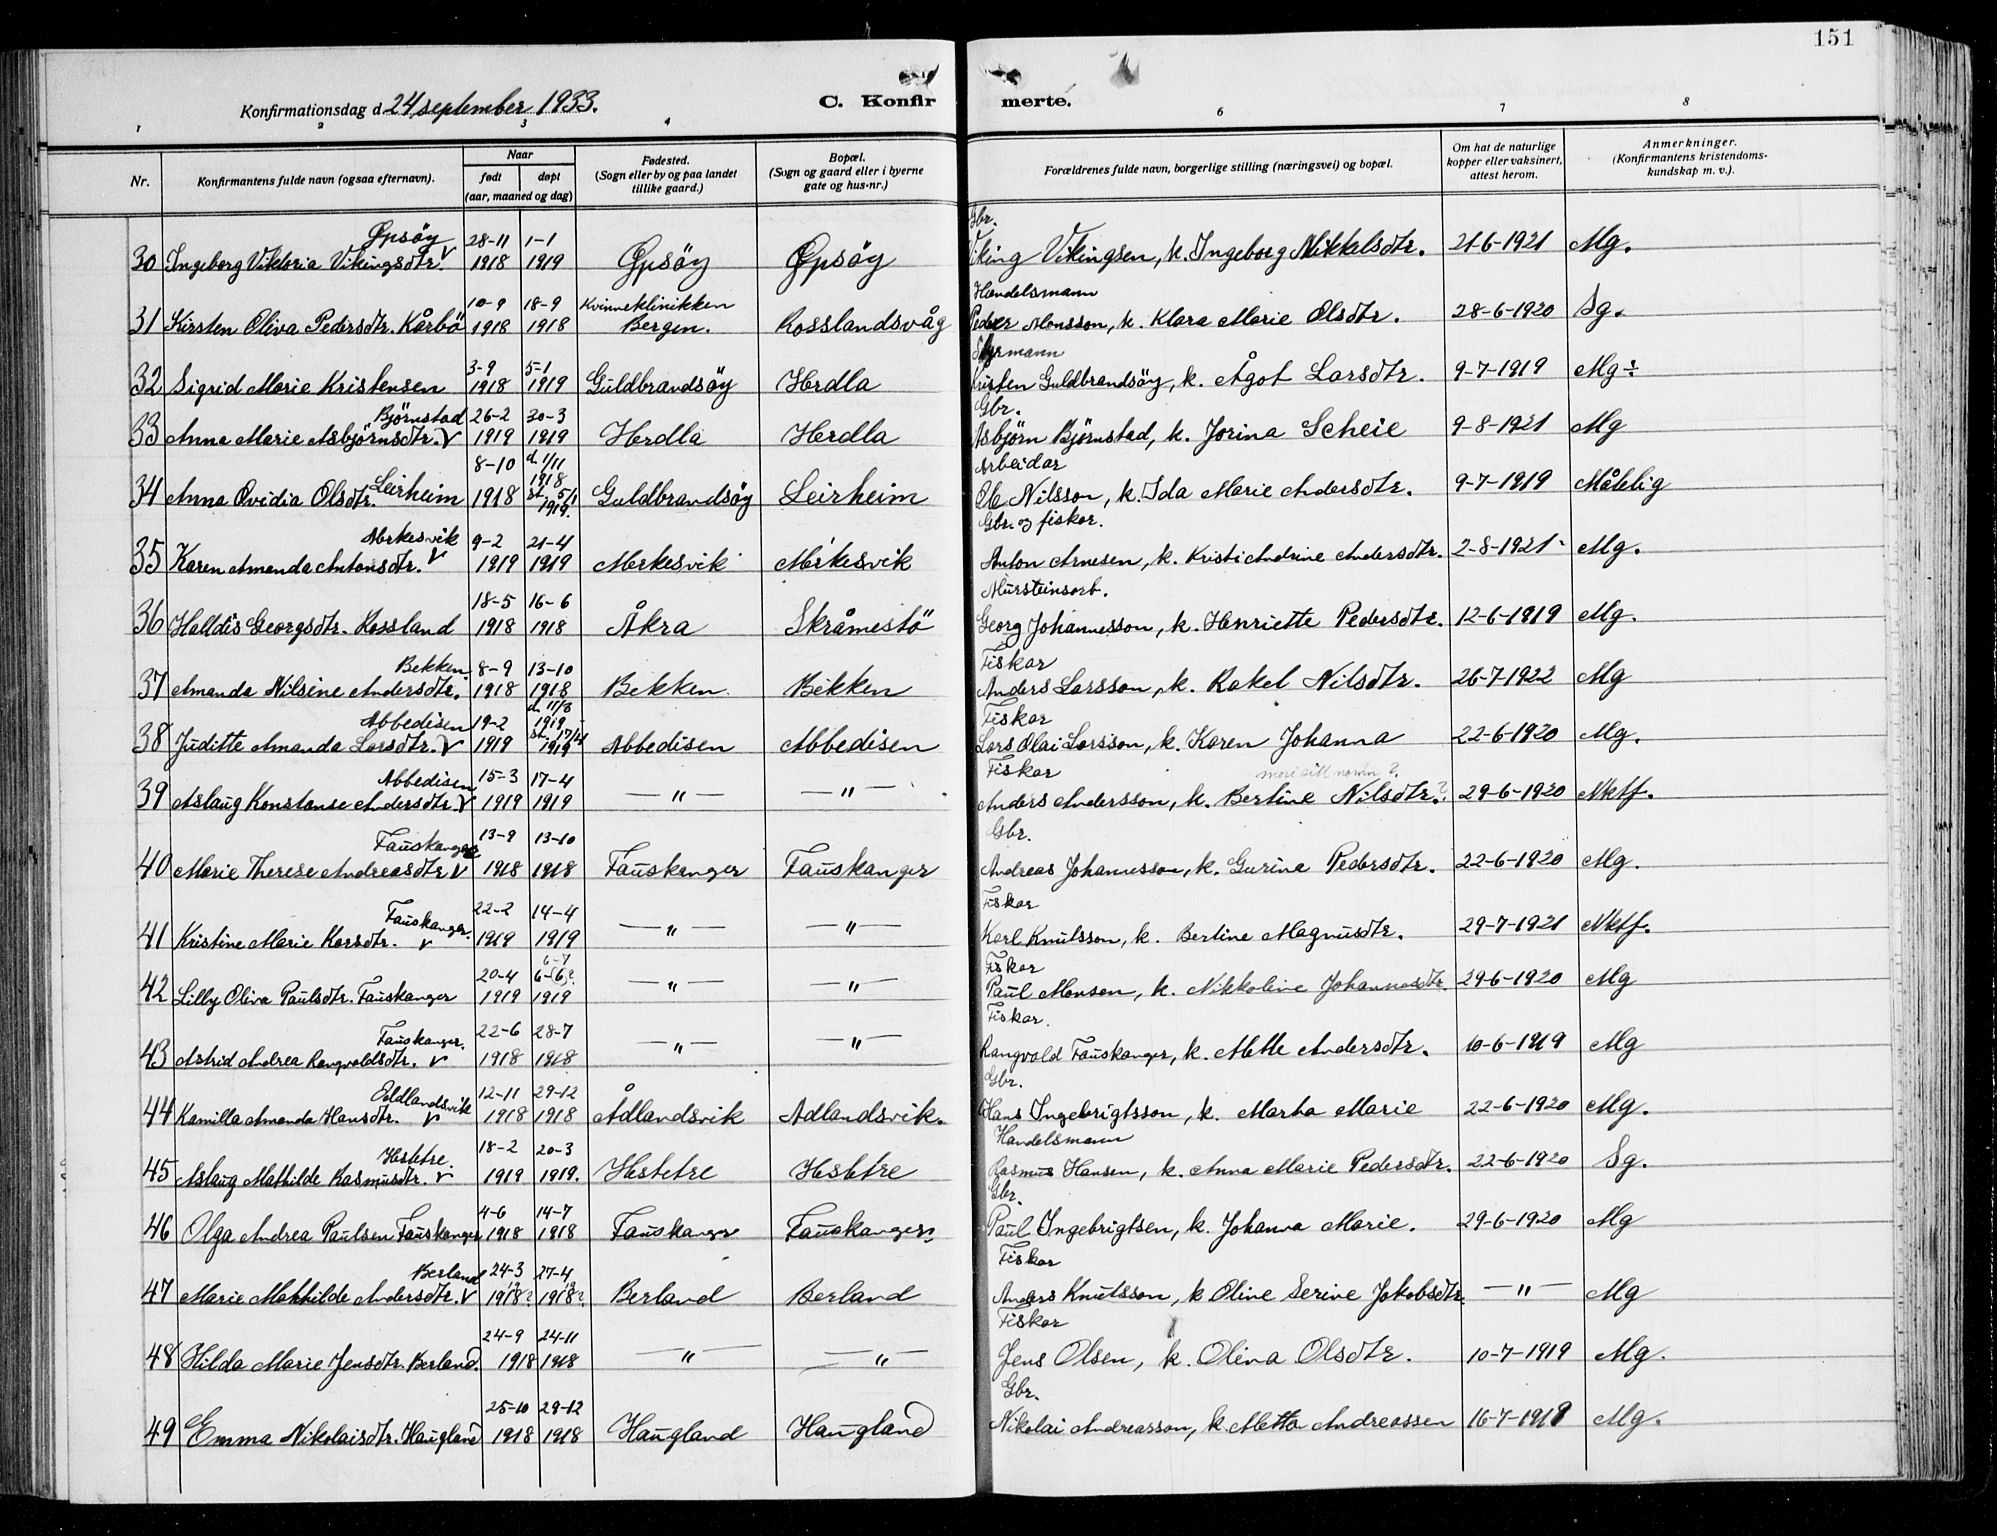 151
Konfirmationsdag d. 24 september 1933.
C. Konfirmerte.
1 2 3 4 6 7 8
Nr. | Konfirmantens fulde navn (ogsaa efternavn). | Naar født døpt (aar, maaned og dag) | Fødested. (Sogn eller by og paa landet tillike gaard.) | Bopæl. (Sogn og gaard eller i byerne gate og hus-nr.) | Forældrenes fulde navn, borgerlige stilling (næringsvei) og bopæl. | Om hat de naturlige kopper eller vaksinert, attest herom. | Anmerkninger. (Konfirmantens kristendoms-kundskap m. v.).
30 | Ingeborg Viktoria Vikingsdtr. Øpsöy v | 28-11 1918 | 1-1 1919 | Øpsöy | Øpsöy | Gbr. Viking Vikingsen, k. Ingeborg Mikkelsdtr. | 21-6-1921 | Mg.
31 | Kirsten Oliva Pedersdtr. Kårbö | 10-9 1918 | 18-9 1918 | Kvinneklinikken Bergen. | Rosslandsvåg | Handelsmann Peder Monsson, k. Klara Marie Olsdtr. | 28-6-1920 | Sg.
32 | Sigrid Marie Kristensen | 3-9 1918 | 5-1 1919 | Guldbrandsöy | Herdla | Styrmann Kristen Guldbrandsöy, k. Ågot Larsdtr. | 9-7-1919 | Mg÷
33 | Anna Marie Asbjørnsdtr. Bjørnstad v | 26-2 1919 | 30-3 1919 | Herdla | Herdla | Gbr. Asbjörn Björnstad, k. Jorina Scheie | 9-8-1921 | Mg
34 | Anna Ovidia Olsdtr. Leirheim | 8-10 1918 | d. 1/11 1918 st. 5/1 1919. | Guldbrandsöy | Leirheim | Arbeidar Ole Nilsson, k. Ida Marie Andersdtr. | 9-7-1919 | Måtelig
35 | Karen Amanda Antonsdtr. Merkesvik v | 9-2 1919 | 21-4 1919 | Merkesvik | Merkesvik | Gbr. og fiskar. Anton Arnesen, k. Kristi Andrine Andersdtr. | 2-8-1921 | Mg.
36 | Halldis Georgsdtr. Rossland | 18-5 1918 | 16-6 1918 | Åkra | Skråmestö | Mursteinsarb. Georg Johannesson, k. Henriette Pedersdtr. | 12-6-1919 | Mg.
37 | Amanda Nilsine Andersdtr. Bekken | 8-9 1918 | 13-10 1918 | Bekken | Bekken | Fiskar Anders Larsson, k. Rakel Nilsdtr. | 26-7-1922 | Mg
38 | Juditte Amanda Larsdtr. Abbedisen v | 19-2 1919 | d. 11/3 1919 st. 17/4 1919 | Abbedisen | Abbedisen | Fiskar Lars Olai Larsson, k. Karen Johanna | 22-6-1920 | Mg.
39 | Aslaug Konstanse Andersdtr. Abbedisen v | 15-3 1919 | 17-4 1919 | — " — | — " — | Fiskar Anders Andersson, k. Bertine Nilsdtr.? | 29-6-1920 | Mktf.
40 | Marie Therese Andreasdtr. Fauskanger v | 13-9 1918 | 13-10 1918 | Fauskanger | Fauskanger | Gbr. Andreas Johannesson, k. Gurine Pedersdtr. | 22-6-1920 | Mg.
41 | Kristine Marie Karsdtr. Fauskanger. v | 22-2 1919 | 14-4 1919 | — " — | — " — | Fiskar Karl Knutsson, k. Bertine Magnusdtr. | 29-7-1921 | Mktf.
42 | Lilly Oliva Paulsdtr. Fauskanger | 20-4 1919 | 6-7 6-6? 1919 | — " — | — " — | Fiskar Paul Monsen, k. Nikkoline Johannesdtr. | 29-6-1920 | Mg
43 | Astrid Andrea Rangvaldsdtr. Fauskanger. v | 22-6 1918 | 28-7 1918 | — " — | — " — | Fiskar. Rangvald Fauskanger, k. Mette Andersdtr. | 10-6-1919 | Mg
44 | Kamilla Amanda Hansdtr. Oddlandsvik v | 12-11 1918 | 29-12 1918 | Ådlandsvik | Adlandsvik. | Gbr. Hans Ingebrigtsson, k. Marta Marie | 22-6-1920 | Mg.
45 | Aslaug Mathilde Rasmusdtr. Hestetre. v | 18-2 1919 | 20-3 1919. | Hestetre | Hestetre | Handelsmann Rasmus Hansen, k. Anna Marie Pedersdtr. | 22-6-1920 | Sg.
46 | Olga Andrea Paulsen Fauskanger | 4-6 1918 | 14-7 1918 | Fauskanger | Fauskanger | Gbr. Paul Ingebrigtsen, k. Johanna Marie. | 29-6-1920 | Mg
47 | Marie Mathilde Andersdtr. Berland v | 24-3 1918? 19 | 27-4 1918? 19 | Berland | Berland | Fiskar Anders Knutsson, k Oline Serine Jakobsdtr. | — " — | Mg
48 | Hilda Marie Jensdtr. Berland. | 24-9 1918 | 24-11 1918 | — " — | — " — | Fiskar Jens Olsen, k. Oliva Olsdtr. | 10-7-1919 | Mg.
49 | Emma Nikolaisdtr. Haugland | 25-10 1918 | 29-12 1918 | Haugland | Haugland | Gbr. Nikolai Andreasson, k. Metta Andreassen | 16-7-1919 | Mg.